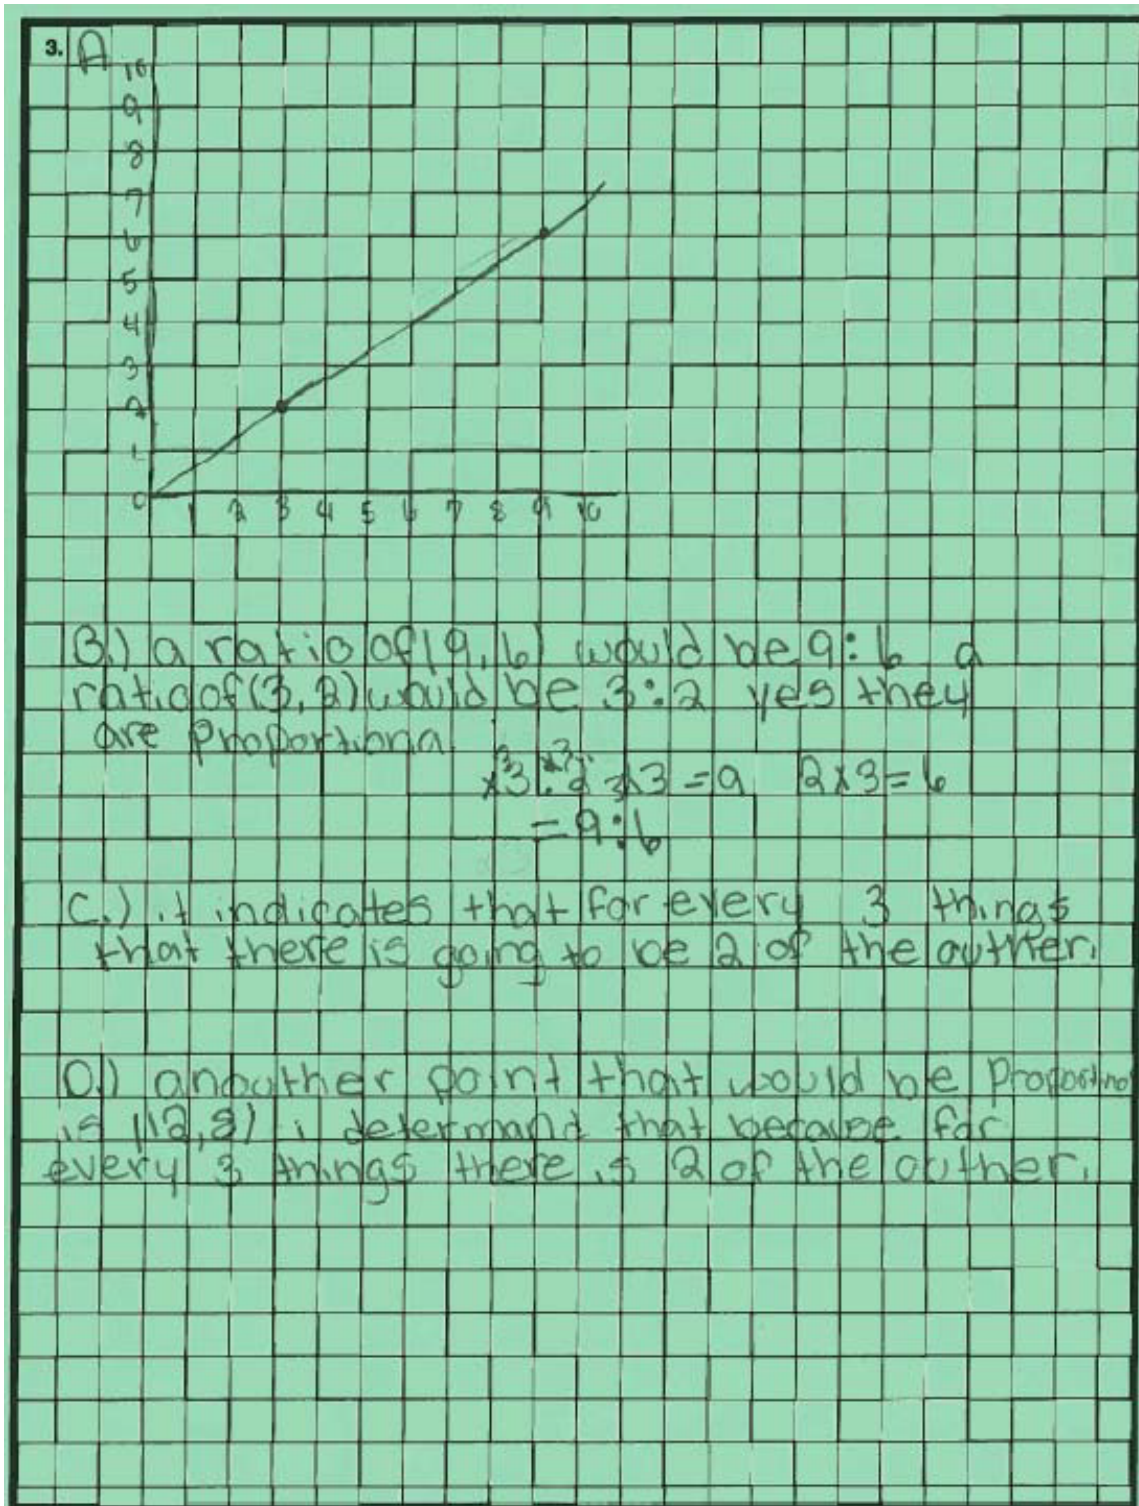 3. A
10
9
8
7
6
5
4
3
2
1
0 1 2 3 4 5 6 7 8 9 10
B.) a ratio of (9,6) would be 9:6 a
ratio of (3,2) would be 3:2 yes they
are Proportiona
x3 x3
3:2 3x3=9 2x3=6
=9:6
C.) it indicates that for every 3 things
that there is going to be 2 of the outher.
D.) anouther point that would be Proportino
is (12,8) i determand that because for
every 3 things there is 2 of the outher.